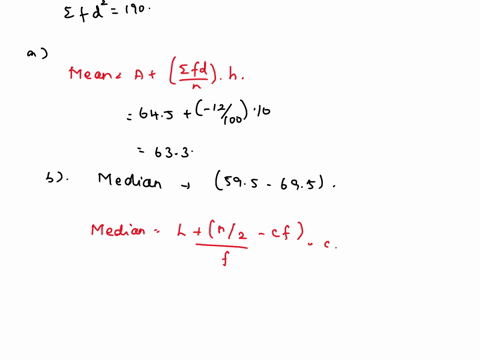 Σfd² = 190.
a)
Mean = A + (Σfd/n) . h.
= 64.5 + (-12/100) . 10
= 63.3.
b). Median → (59.5 - 69.5).
Median = L + (n/2 - cf)/f . c.